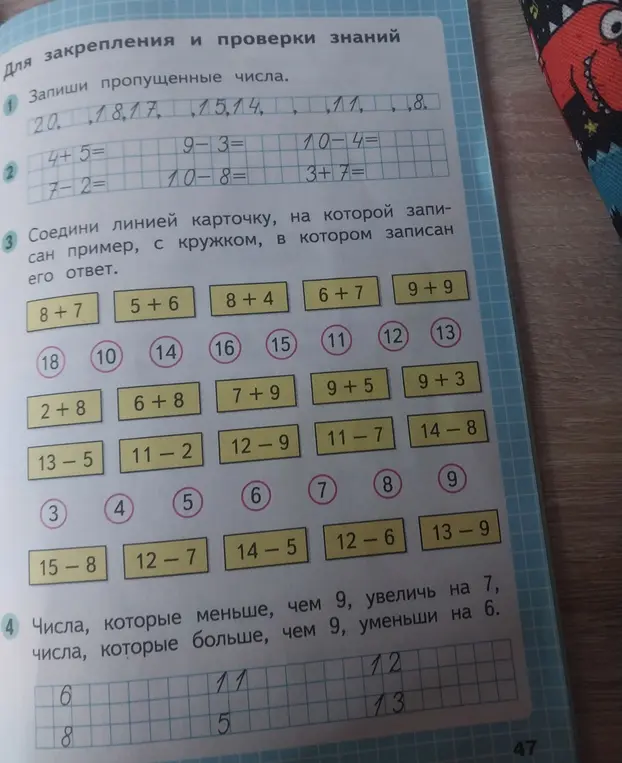 Для закрепления и проверки знаний
1 Запиши пропущенные числа.
20, ,18,17, ,15,14, , ,11, , ,8.
2 4+5= 9-3= 10-4=
7-2= 10-8= 3+7=
3 Соедини линией карточку, на которой запи-
сан пример, с кружком, в котором записан
его ответ.
8 + 7 5 + 6 8 + 4 6 + 7 9 + 9
18 10 14 16 15 11 12 13
2 + 8 6 + 8 7 + 9 9 + 5 9 + 3
13 − 5 11 − 2 12 − 9 11 − 7 14 − 8
3 4 5 6 7 8 9
15 − 8 12 − 7 14 − 5 12 − 6 13 − 9
4 Числа, которые меньше, чем 9, увеличь на 7,
числа, которые больше, чем 9, уменьши на 6.
6 11 12
8 5 13
47